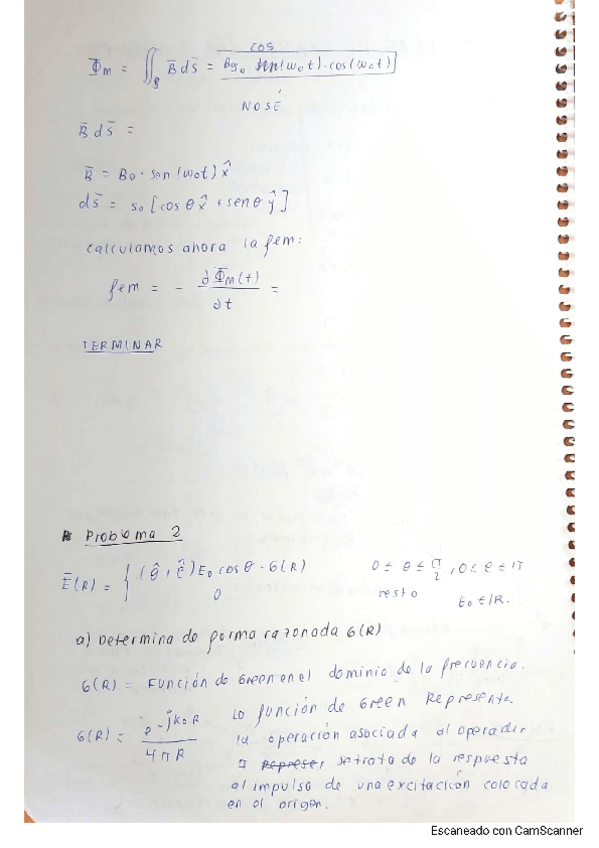 cos
Φ̄m = ∬s B̄ ds̄ = B s₀ sen(ω₀t)·cos(ω₀t)
NO SÉ
B̄ ds̄ =
B̄ = B₀ · sen(ω₀t) x̂
ds̄ = s₀ [cos θ x̂ + sen θ ŷ]
calculamos ahora la fem:
fem = - ∂Φ̄m(t) / ∂t =
TERMINAR
Problema 2
Ē(R) = { (θ̂, φ̂) E₀ cos θ · G(R) 0 ≤ θ ≤ π/2, 0 ≤ φ ≤ π
0 resto
E₀ ∈ ℝ.
a) Determina de forma razonada G(R)
G(R) = Función de Green en el dominio de la frecuencia.
G(R) = e^-jk₀R / 4πR La función de Green Representa
la operación asociada al operador
se trata de la respuesta
al impulso de una excitación colocada
en el origen.
Escaneado con CamScanner